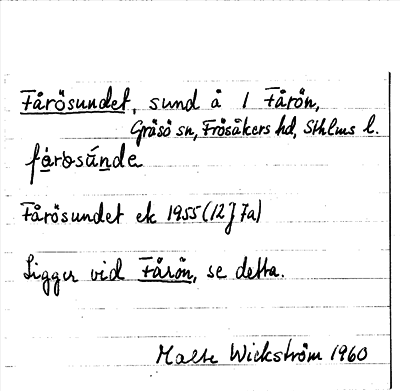 Fårösundet, sund å 1 Fårön,
Gräsö sn, Frösåkers hd, Sthlms l.
fårosúnde
Fårösundet ek 1955 (12J 7a)
Ligger vid Fårön, se detta.
Malte Wickström 1960